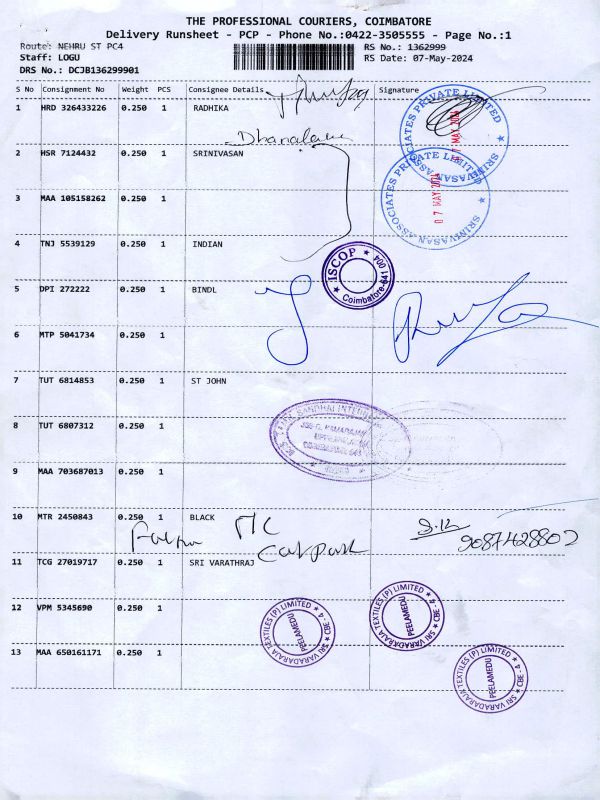 THE PROFESSIONAL COURIERS, COIMBATORE
Delivery Runsheet - PCP - Phone No.:0422-3505555 - Page No.:1
Route: NEHRU ST PC4 RS No.: 1362999
Staff: LOGU RS Date: 07-May-2024
DRS No.: DCJB136299901
S No Consignment No Weight PCS Consignee Details Signature
1 HRD 326433226 0.250 1 RADHIKA
SRINIVASAN ASSOCIATES PRIVATE LIMITED
7 MAY 2024
2 HSR 7124432 0.250 1 SRINIVASAN
SRINIVASAN ASSOCIATES PRIVATE LIMITED
07 MAY 2024
3 MAA 105158262 0.250 1
4 TNJ 5539129 0.250 1 INDIAN
ISCOP
Coimbatore-641 004
5 DPI 272222 0.250 1 BINDL
6 MTP 5041734 0.250 1
7 TUT 6814853 0.250 1 ST JOHN
8 TUT 6807312 0.250 1
9 MAA 703687013 0.250 1
10 MTR 2450843 0.250 1 BLACK
Carpark
9087428802
11 TCG 27019717 0.250 1 SRI VARATHRAJ
12 VPM 5345690 0.250 1
SRI VARADARAJA TEXTILES (P) LIMITED CBE - 4
PEELAMEDU
SRI VARADARAJA TEXTILES (P) LIMITED CBE - 4
PEELAMEDU
13 MAA 650161171 0.250 1
SRI VARADARAJA TEXTILES (P) LIMITED CBE - 4
PEELAMEDU